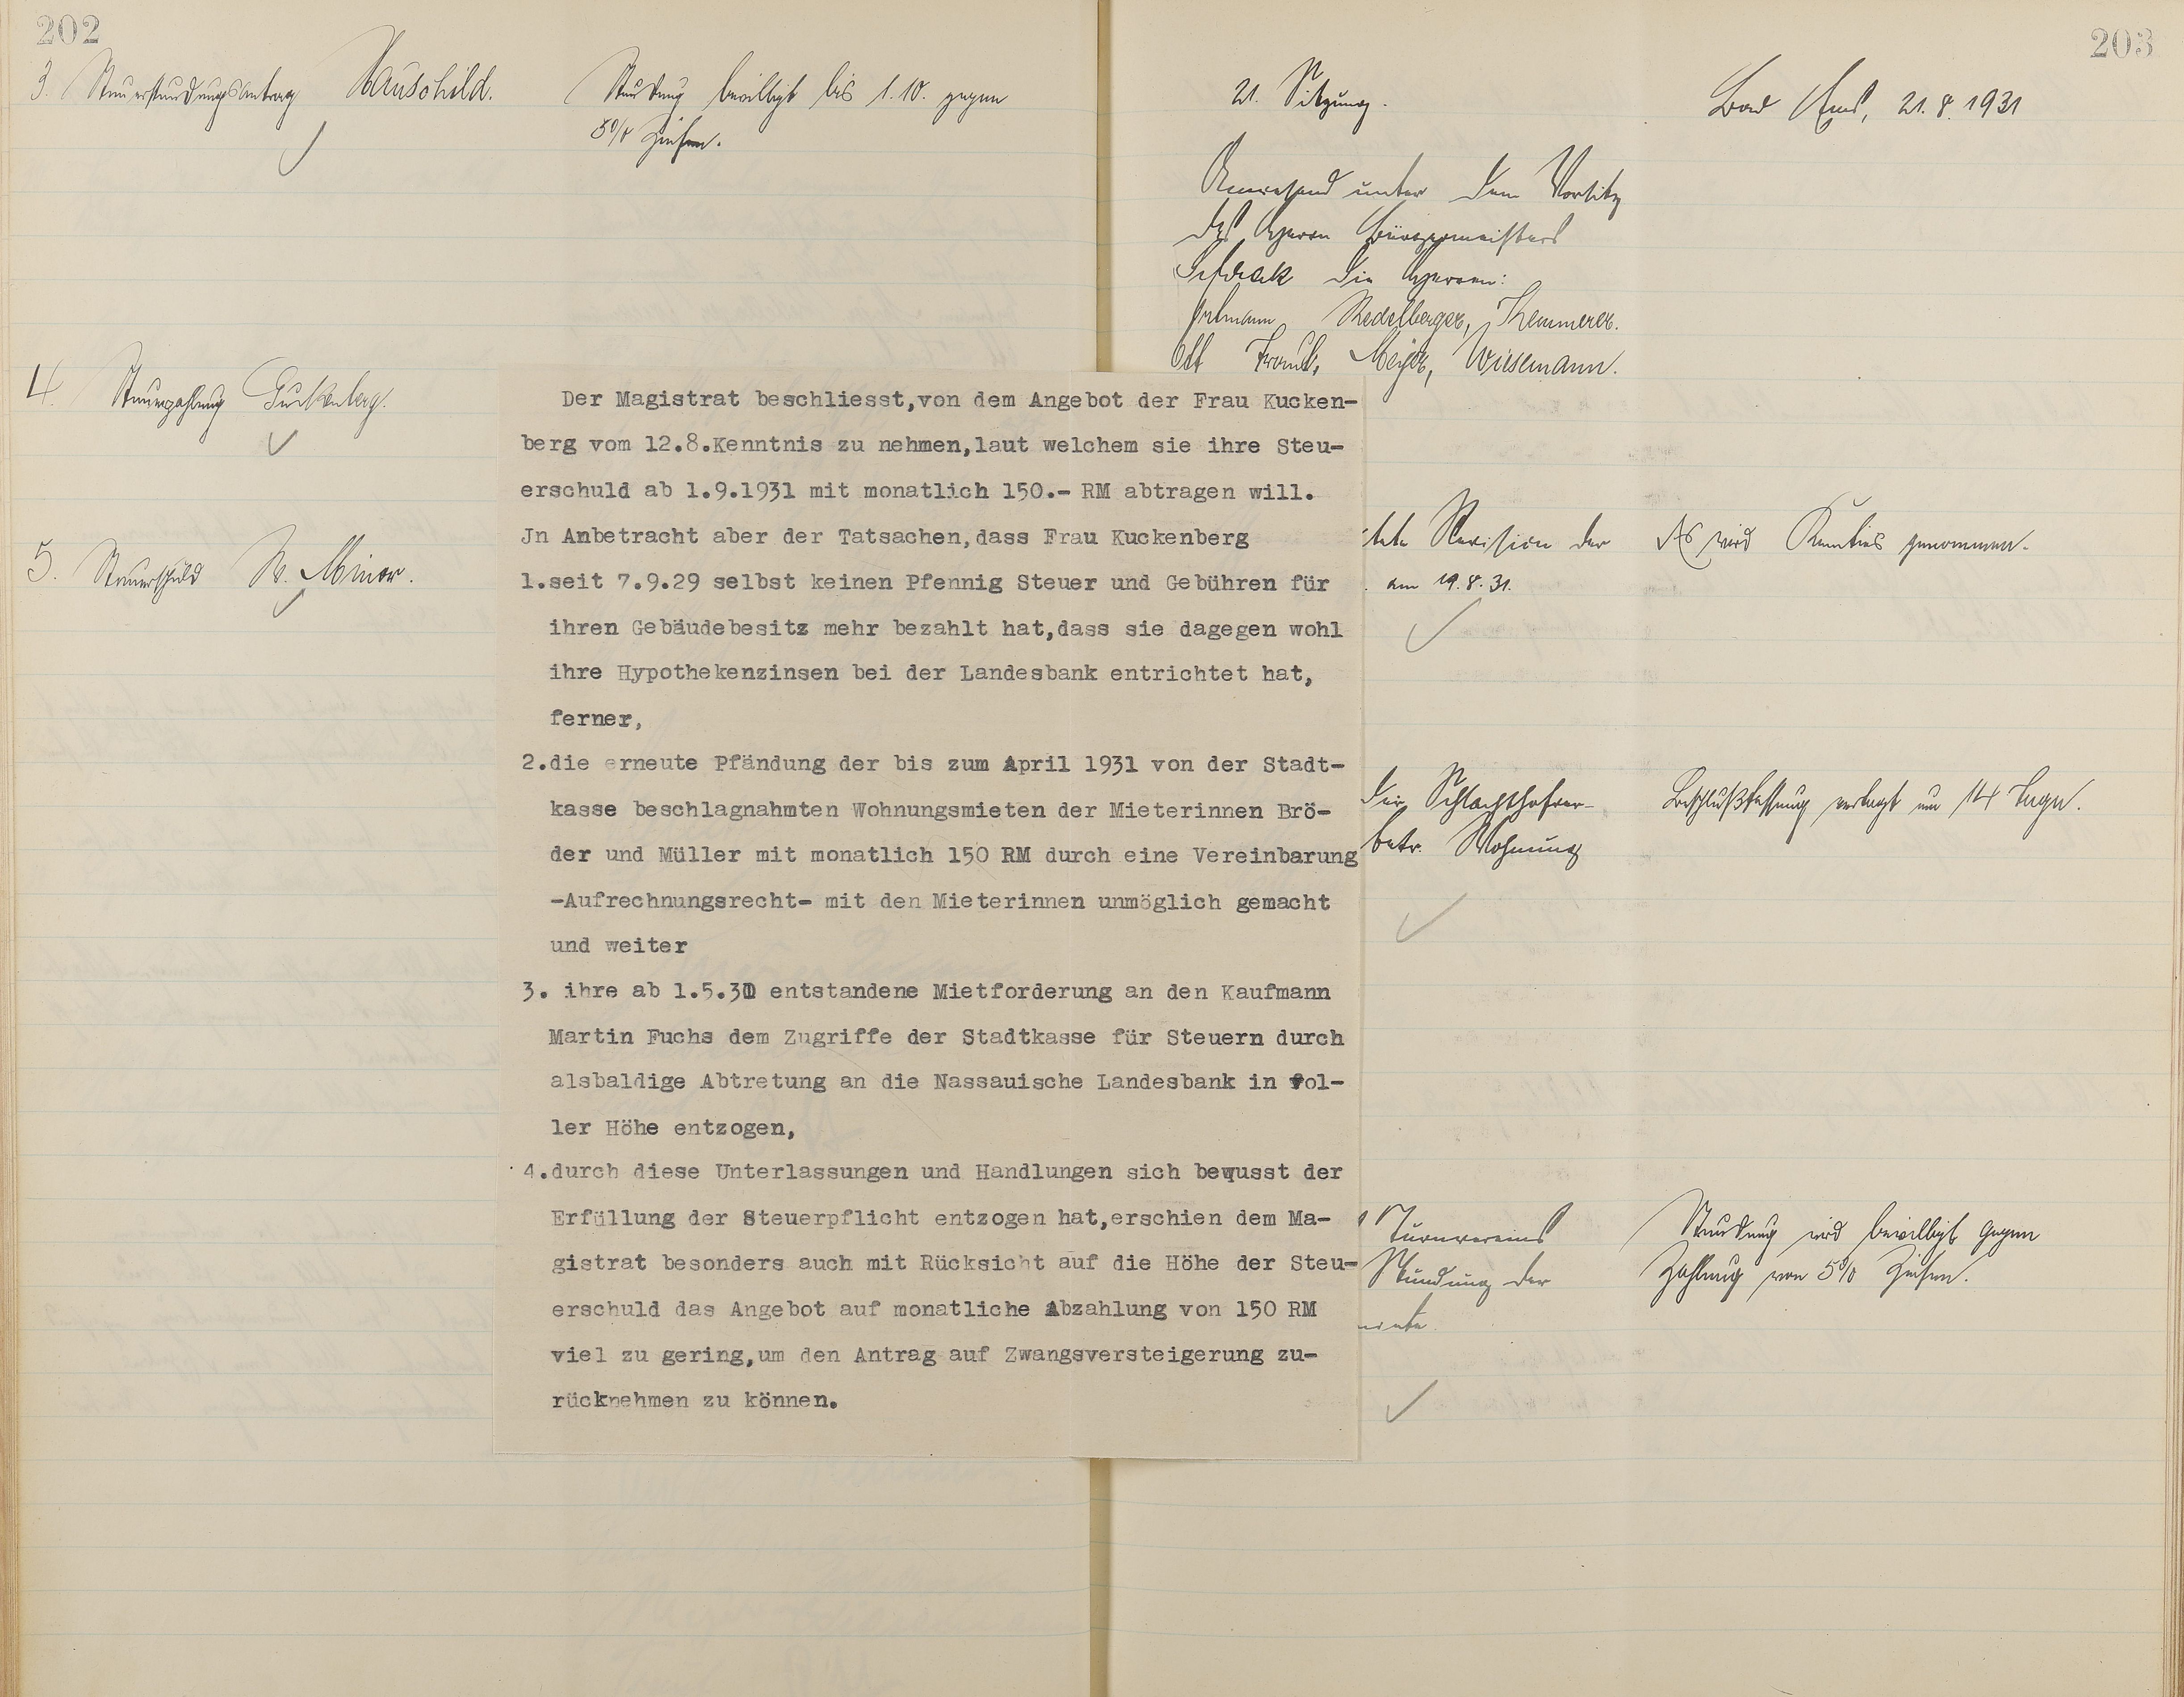 202
3. Steuerstundungsantrag Hauschild.
Stundung bewilligt bis 1.10. gegen
5% Zinsen.
4. Steuerzahlung Guckenberg.
5. Steuerschuld W. Minor.
Der Magistrat beschliesst,von dem Angebot der Frau Kucken-
berg vom 12.8.Kenntnis zu nehmen,laut welchem sie ihre Steu-
erschuld ab 1.9.1931 mit monatlich 150.- RM abtragen will.
Jn Anbetracht aber der Tatsachen,dass Frau Kuckenberg
1.seit 7.9.29 selbst keinen Pfennig Steuer und Gebühren für
ihren Gebäudebesitz mehr bezahlt hat,dass sie dagegen wohl
ihre Hypothekenzinsen bei der Landesbank entrichtet hat,
ferner,
2.die erneute Pfändung der bis zum April 1931 von der Stadt-
kasse beschlagnahmten Wohnungsmieten der Mieterinnen Brö-
der und Müller mit monatlich 150 RM durch eine Vereinbarung
-Aufrechnungsrecht- mit den Mieterinnen unmöglich gemacht
und weiter
3. ihre ab 1.5.31 entstandene Mietforderung an den Kaufmann
Martin Fuchs dem Zugriffe der Stadtkasse für Steuern durch
alsbaldige Abtretung an die Nassauische Landesbank in vol-
ler Höhe entzogen,
4.durch diese Unterlassungen und Handlungen sich bewusst der
Erfüllung der Steuerpflicht entzogen hat,erschien dem Ma-
gistrat besonders auch mit Rücksicht auf die Höhe der Steu-
erschuld das Angebot auf monatliche Abzahlung von 150 RM
viel zu gering,um den Antrag auf Zwangsversteigerung zu-
rücknehmen zu können.
203
21. Sitzung.
Bad Ems, 21.8.1931
Anwesend unter dem Vorsitz
des Herrn Bürgermeisters
die Herren:
Redelberger, Kemmerer.
Ott Frank, Meyer, Wiesemann.
Revision der
am 19.8.31.
Es wird Kenntnis genommen.
der Schlachthofver-
betr. Wohnung
Beschlußfassung vertagt um 14 Tage.
Turnvereins
Stundung der
Stundung wird bewilligt gegen
Zahlung von 5% Zinsen.